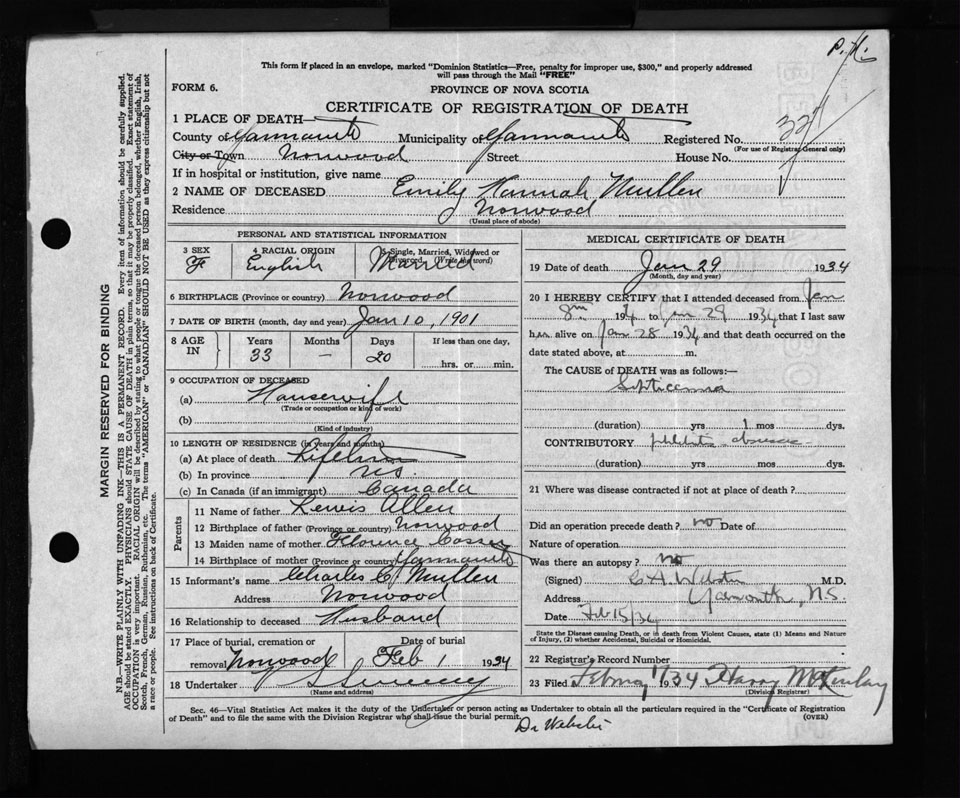 P.H.
This form if placed in an envelope, marked "Dominion Statistics—Free, penalty for improper use, $300," and properly addressed
will pass through the Mail "FREE"
FORM 6.
PROVINCE OF NOVA SCOTIA
CERTIFICATE OF REGISTRATION OF DEATH
1 PLACE OF DEATH—
County of Yarmouth Municipality of Yarmouth Registered No.
(For use of Registrar General only)
City or Town Norwood Street House No.
If in hospital or institution, give name
2 NAME OF DECEASED Emily Hannah Mullen
Residence Norwood
(Usual place of abode)
PERSONAL AND STATISTICAL INFORMATION
3 SEX F
4 RACIAL ORIGIN English
5 Single, Married, Widowed or Divorced (Write the word) Married
6 BIRTHPLACE (Province or country) Norwood
7 DATE OF BIRTH (month, day and year) Jan 10, 1901
8 AGE IN Years 33 Months — Days 20 If less than one day, hrs. or min.
9 OCCUPATION OF DECEASED
(a) Housewife
(Trade or occupation or kind of work)
(b)
(Kind of industry)
10 LENGTH OF RESIDENCE (in years and months)
(a) At place of death Lifetime
(b) In province N.S.
(c) In Canada (if an immigrant) Canada
Parents
11 Name of father Lewis Allen
12 Birthplace of father (Province or country) Norwood
13 Maiden name of mother Florence
14 Birthplace of mother (Province or country) Yarmouth
15 Informant's name Charles C. Mullen
Address Norwood
16 Relationship to deceased Husband
17 Place of burial, cremation or removal Norwood Date of burial Feb 1 1934
18 Undertaker Sweeny
(Name and address)
MEDICAL CERTIFICATE OF DEATH
19 Date of death Jan 29 1934
(Month, day and year)
20 I HEREBY CERTIFY that I attended deceased from Jan
8th 1934 to Jan 29 1934 that I last saw
h.er alive on Jan 28 1934 and that death occurred on the
date stated above, at m.
The CAUSE of DEATH was as follows:—
Septicemia
(duration) yrs 1 mos dys.
CONTRIBUTORY abscess
(duration) yrs mos dys.
21 Where was disease contracted if not at place of death?
Did an operation precede death? no Date of
Nature of operation
Was there an autopsy? no
(Signed) C A Webster M.D.
Address Yarmouth, N.S.
Date Feb 15/34
State the Disease causing Death, or in death from Violent Causes, state (1) Means and Nature
of Injury, (2) whether Accidental, Suicidal or Homicidal.
22 Registrar's Record Number
23 Filed 1934 Harry McKinlay
(Division Registrar)
Sec. 46—Vital Statistics Act makes it the duty of the Undertaker or person acting as Undertaker to obtain all the particulars required in the "Certificate of Registration
of Death" and to file the same with the Division Registrar who shall issue the burial permit.
(OVER)
Dr Webster
MARGIN RESERVED FOR BINDING
N.B.—WRITE PLAINLY WITH UNFADING INK—THIS IS A PERMANENT RECORD. Every item of information should be carefully supplied.
AGE should be stated EXACTLY. PHYSICIANS should STATE CAUSE OF DEATH in plain terms, so that it may be properly classified. Exact statement of
OCCUPATION is very important. RACIAL ORIGIN will be described by stating to what people or tongue the deceased person belonged, whether English, Irish,
Scotch, French, German, Russian, Ruthenian, etc. The terms "AMERICAN" or "CANADIAN" SHOULD NOT BE USED as they express citizenship but not
a race or people. See instructions on back of Certificate.